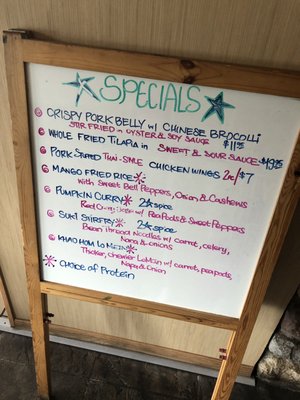 SPECIALS
CRISPY PORK BELLY w/ CHINESE BROCOLLI
STIR FRIED in OYSTER & SOY SAUCE $11.95
WHOLE FRIED TILAPIA in SWEET & SOUR SAUCE
PORK STUFFED THAI-STYLE CHICKEN WINGS 2x/$7
MANGO FRIED RICE
With Sweet Bell Peppers, Onion & Cashews
PUMPKIN CURRY 2 spice
Red Curry w/ Pea Pods & Sweet Peppers
SUKI STIRFRY 2 spice
Bean Thread Noodles w/ carrot, celery,
Napa & onions
KHAO HOM LO MEIN
Thicker, chewier LoMein w/ carrots, peapods,
Napa & Onion
Choice of Protein